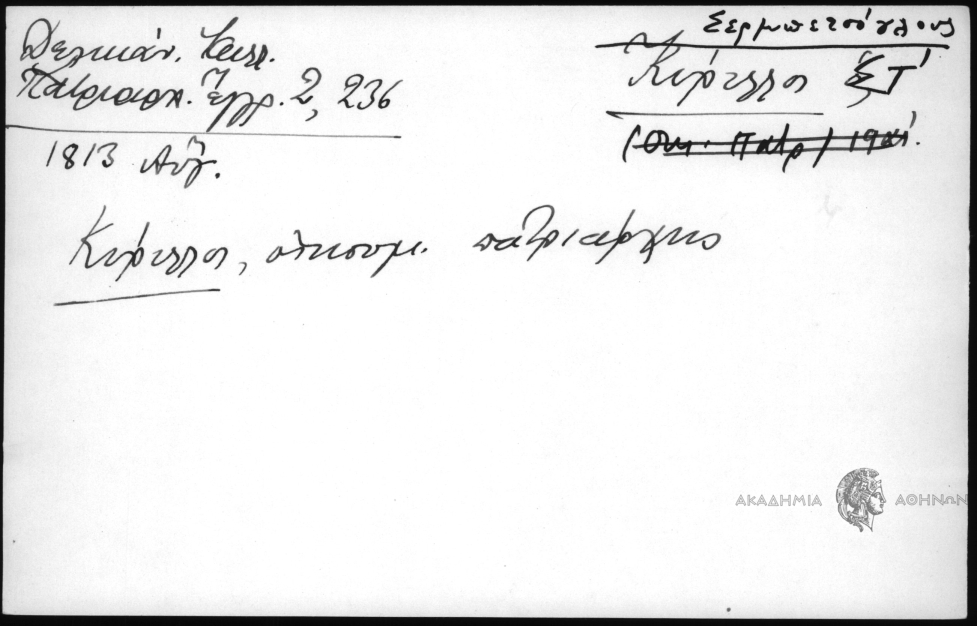 Δελικάν. Καλλ.
Πατριαρχ. Ἔγγρ. 2, 236
1813 Αὐγ.
Σερμπετσόγλους
Κύριλλος ΣΤ'
(Οικ. Πατρ)
Κύριλλος, οἰκουμ. πατριάρχης
ΑΚΑΔΗΜΙΑ ΑΘΗΝΩΝ